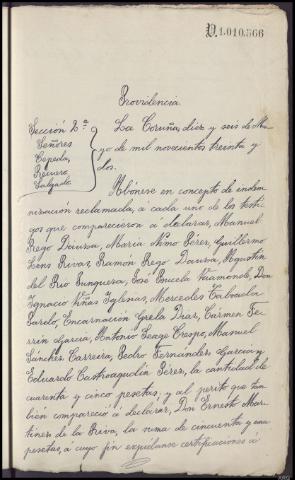 D.1.010.566
Providencia
Sección 2ª
Señores
Cepeda,
Reinoso
Salgado
La Coruña, diez y seis de Ma-
yo de mil novecientos treinta y
dos.
Abónese en concepto de indem-
nización reclamada, á cada uno de los testi-
gos que comparecieron á declarar, Manuel
Rego Daviña, María Mino Pérez, Guillermo
Sens Rivas, Ramón Rego Daviña, Agustín
del Rio Junquera, José Poucela Vaamonde, Don
Ignacio Viñas Iglesias, Mercedes Taboada
Varelo, Encarnación Grela Diaz, Carmen Fe-
rrin Garcia, Antonio Seage Crespo, Manuel
Sánchez Carreira, Pedro Fernández Garcia y
Eduardo Castroagudin Pérez, la cantidad de
cuarenta y cinco pesetas, y al perito que tam-
bién compareció á declarar, Don Ernesto Mar-
tinez de la Riva, la suma de cincuenta y una
pesetas, á cuyo fin expídanse certificaciones á